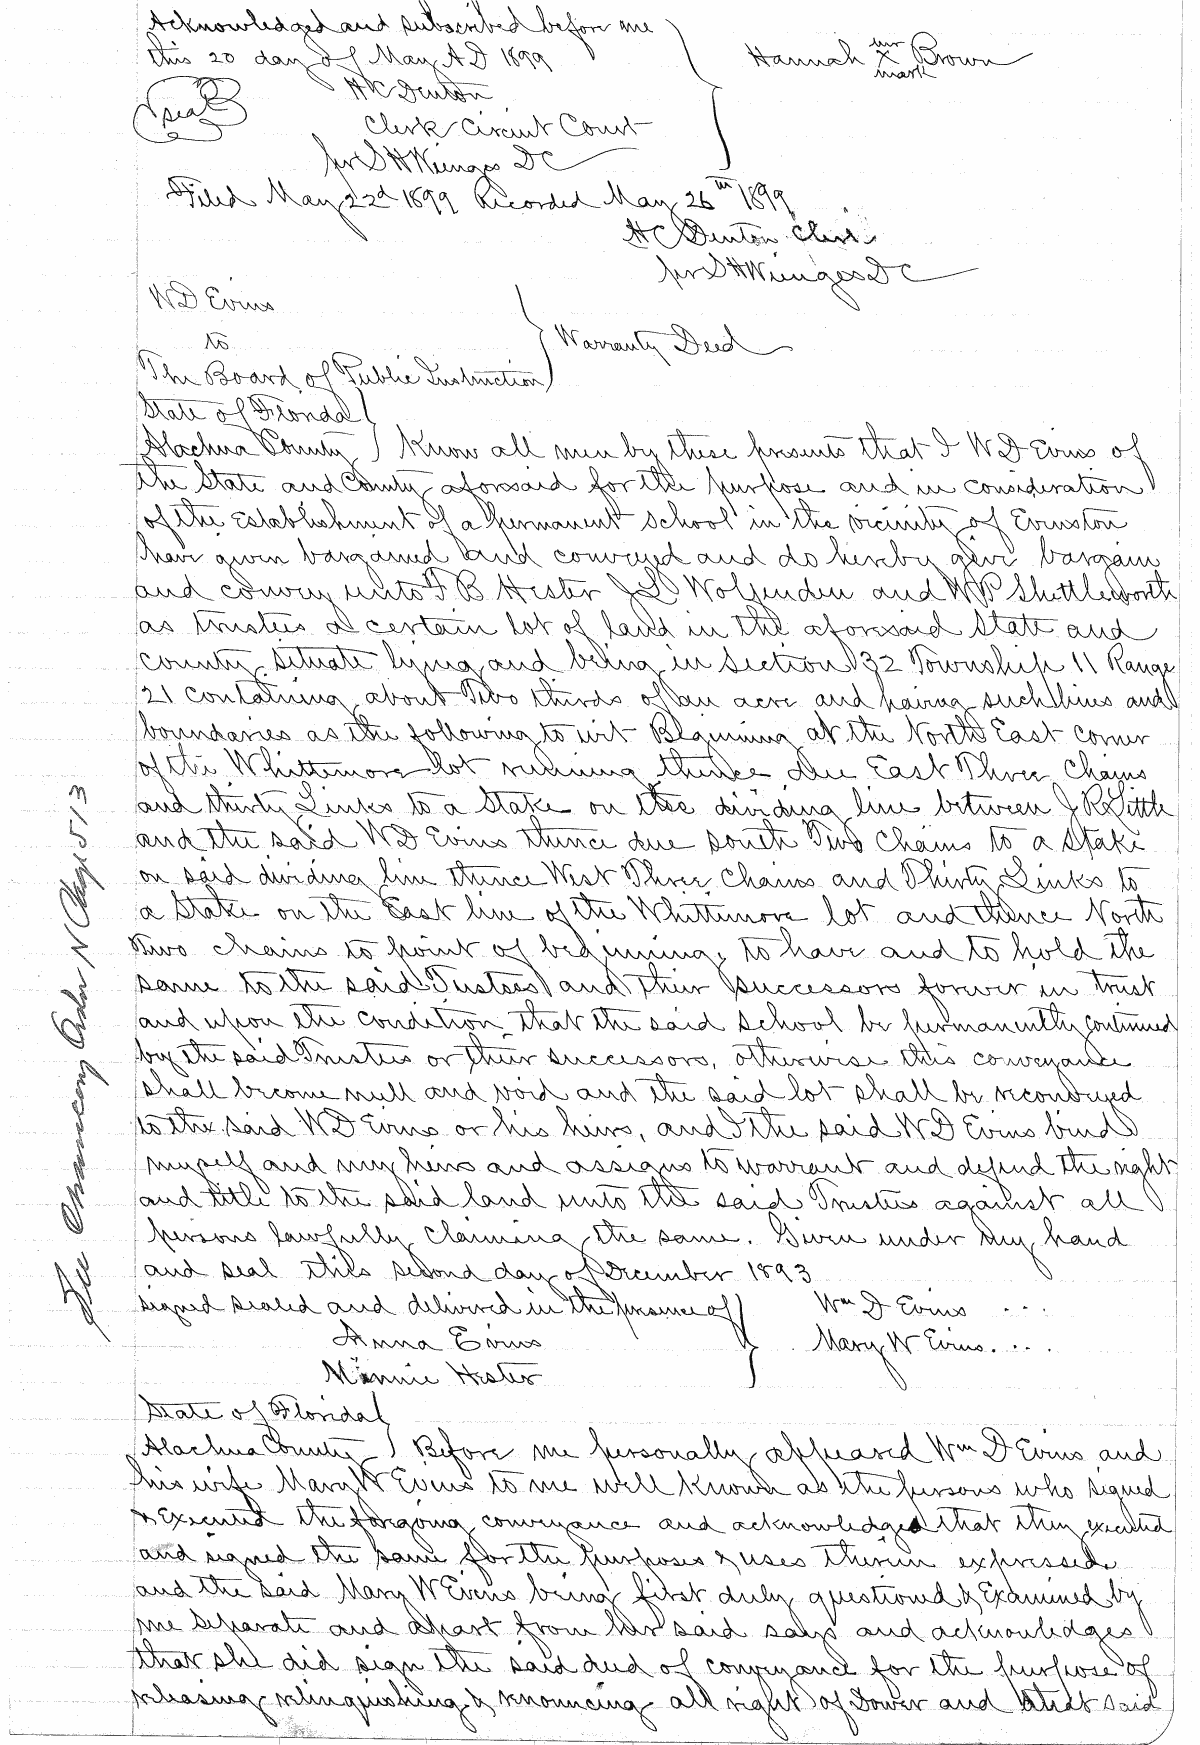 Acknowledged and subscribed before me
this 20 day of May A D 1899
Hannah her x mark Brown
H C Denton
seal
Clerk Circuit Court
per S H Wienges D C
Filed May 22d 1899 Recorded May 26th 1899
H C Denton Clerk
per S H Wienges D C
W D Evins
to
Warranty Deed
The Board of Public Instruction
State of Florida
Alachua County Know all men by these presents that I W D Evins of
the State and County aforesaid for the purpose and in consideration
of the Establishment of a permanent school in the vicinity of Evinston
have given bargained and conveyed and do hereby give bargain
and convey unto F B Hester J L Wolfenden and W P Shettleworth
as trustees a certain lot of land in the aforesaid State and
County situate lying and being in Section 32 Township 11 Range
21 containing about Two thirds of an acre and having such lines and
boundaries as the following to wit Beginning at the North East corner
of the Whittemore lot running thence due East Three Chains
and thirty Links to a Stake on the dividing line between J R Little
and the said W D Evins thence due south Two Chains to a Stake
on said dividing line thence West Three Chains and Thirty Links to
a Stake on the East line of the Whittemore lot and thence North
two chains to point of beginning, to have and to hold the
same to the said Trustees and their successors forever in trust
and upon the condition that the said school be permanently continued
by the said Trustees or their successors, otherwise this conveyance
shall become null and void and the said lot shall be reconveyed
to the said W D Evins or his heirs, and I the said W D Evins bind
myself and my heirs and assigns to warrant and defend the right
and title to the said land unto the said Trustees against all
persons lawfully claiming the same. Given under my hand
and seal this second day of December 1893
signed sealed and delivered in the presence of Wm D Evins ...
Anna Evins Mary W Evins. ...
Minnie Hester
State of Florida
Alachua County Before me personally appeared Wm D Evins and
his wife Mary W Evins to me well known as the persons who signed
& Executed the forgoing conveyance and acknowledged that they executed
and signed the same for the purposes & uses therein expressed
and the said Mary W Evins being first duly questioned & Examined by
me separate and apart from her said says and acknowledges
that she did sign the said deed of conveyance for the purpose of
releasing relinquishing & renouncing all right of Dower and that said
See Chancery Order N Page 513